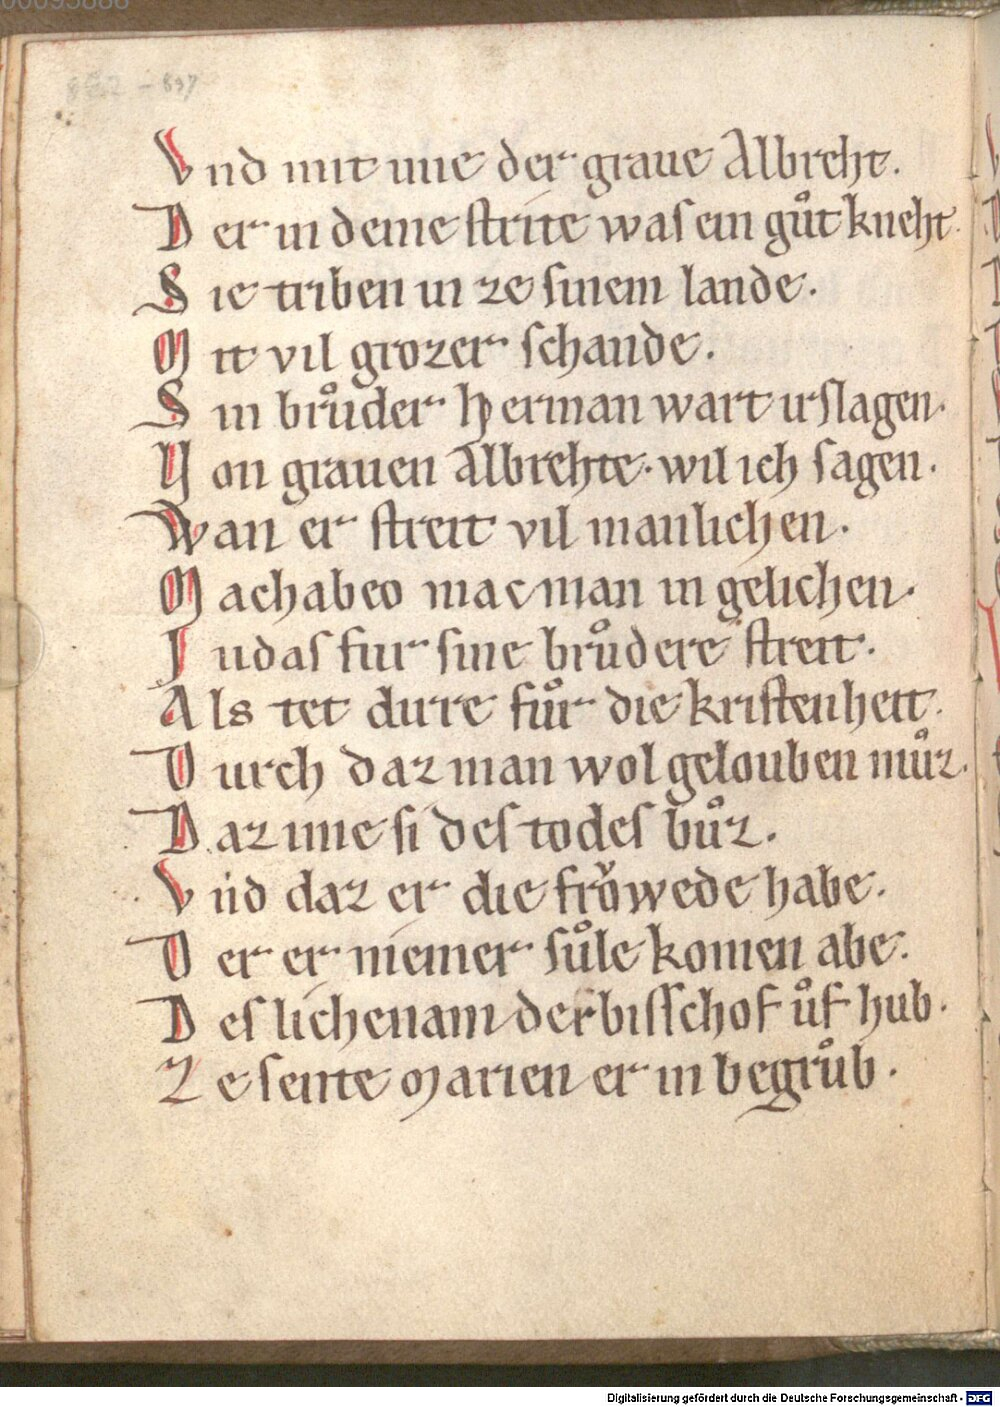 00095886
832 – 837
Vnd mit ime der graue Albreht.
Der in deme ſtrite waſ ein gůt kneht.
Sie triben in ze ſinem lande.
Mit vil grozer ſchande.
Sin brůder herman wart irſlagen.
Von grauen Albrehte. wil ich ſagen.
Wan er ſtreit vil manlichen.
Machabeo mac man in gelichen.
Judaſ fur ſine brůdere ſtreit.
Als tet dirre fůr die kriſtenheit.
Durch daz man wol gelouben můz.
Daz ime ſi deſ todeſ bůz.
Vnd daz er die frŏwede habe.
Der er niemer ſůle komen abe.
Deſ lichenam der biſſchof ůf hub.
Ze ſente Marien er in begrůb.
Digitalisierung gefördert durch die Deutsche Forschungsgemeinschaft - DFG